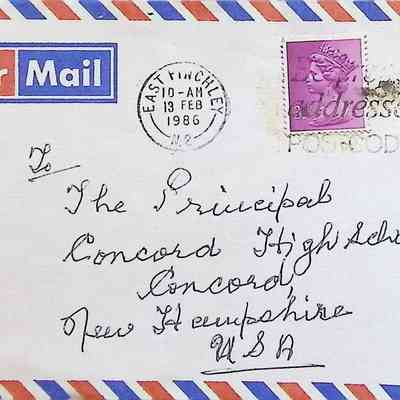 r Mail
EAST FINCHLEY
10-AM
13 FEB
1986
N.2
addresse
POSTCOD
To
The Principal
Concord High Scho
Concord,
New Hampshire
USA